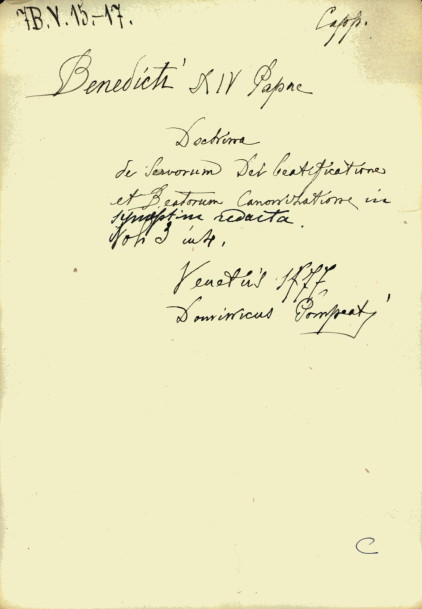 7B.V.15-17.
Capp.
Benedicti XIV Papae
Doctrina
de Servorum Dei beatificatione
et Beatorum Canonizatione in
synopsim redacta.
Voll 3 in 4.
Venetiis 1777
Dominicus Pompeati
C